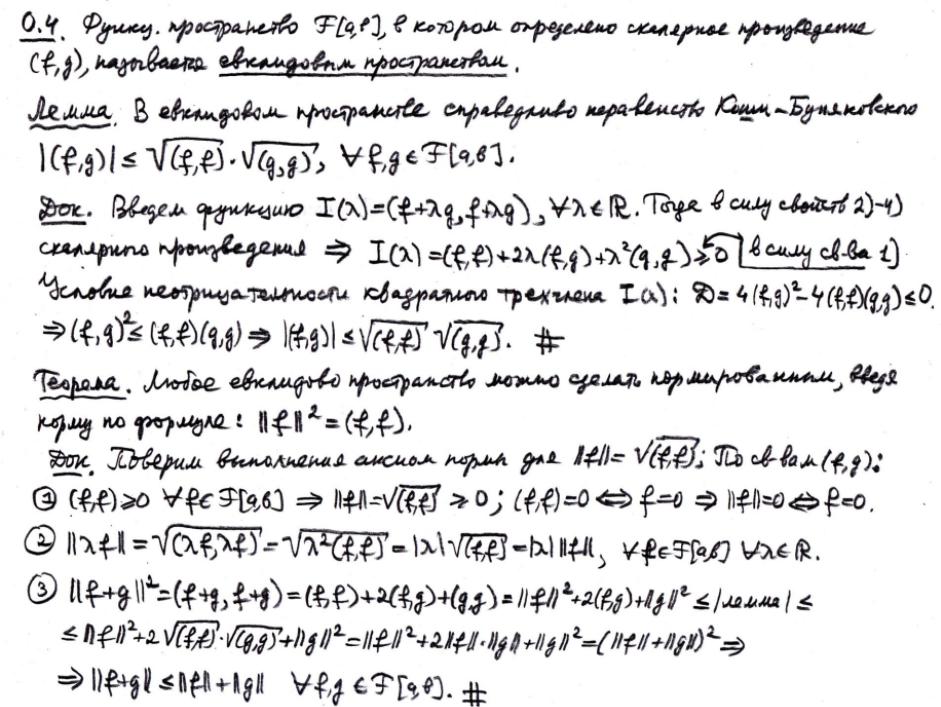 0.4. Функц. пространство F[a,b], в котором определено скалярное произведение
(f,g), называется евклидовым пространством.
Лемма. В евклидовом пространстве справедливо неравенство Коши-Буняковского
|(f,g)| ≤ √(f,f) · √(g,g), ∀f,g ∈ F[a,b].
Док. Введем функцию I(λ)=(f+λg, f+λg), ∀λ∈ℝ. Тогда в силу свойств 2)-4)
скалярного произведения ⇒ I(λ)=(f,f)+2λ(f,g)+λ²(g,g) ≥ 0 [в силу св-ва 1]
Условие неотрицательности квадратного трехчлена I(λ): D=4(f,g)²-4(f,f)(g,g)≤0.
⇒(f,g)²≤(f,f)(g,g) ⇒ |(f,g)| ≤ √(f,f) √(g,g). #
Теорема. Любое евклидово пространство можно сделать нормированным, введя
норму по формуле: ||f||² = (f,f).
Док. Поверим выполнения аксиом нормы для ||f|| = √(f,f); По св-вам (f,g):
① (f,f)≥0 ∀f∈F[a,b] ⇒ ||f||=√(f,f) ≥ 0; (f,f)=0 ⇔ f=0 ⇒ ||f||=0 ⇔ f=0.
② ||λf|| = √(λf,λf) = √λ²(f,f) = |λ|√(f,f) = |λ| ||f||, ∀f∈F[a,b] ∀λ∈ℝ.
③ ||f+g||²=(f+g, f+g)=(f,f)+2(f,g)+(g,g)=||f||²+2(f,g)+||g||² ≤ |лемма| ≤
≤ ||f||²+2√(f,f)·√(g,g)+||g||²=||f||²+2||f||·||g||+||g||²=(||f||+||g||)² ⇒
⇒ ||f+g|| ≤ ||f||+||g|| ∀f,g ∈ F[a,b]. #